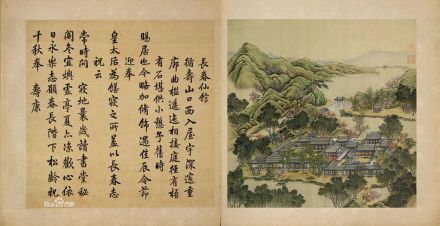 長春仙館
循壽山口西入屋宇深邃重
廊曲檻逶迤相接庭徑有梧
有石堪供小憩予舊時
賜居也今略加修飾遇佳辰令節
迎奉
皇太后為膳寢之所蓋以長春志
祝云
常時問寢地曩歲讀書堂秘
閣冬宜燠虛亭夏亦涼歡心依
日永樂志願春長階下松齡祝
千秋奉壽康
Bai 百科